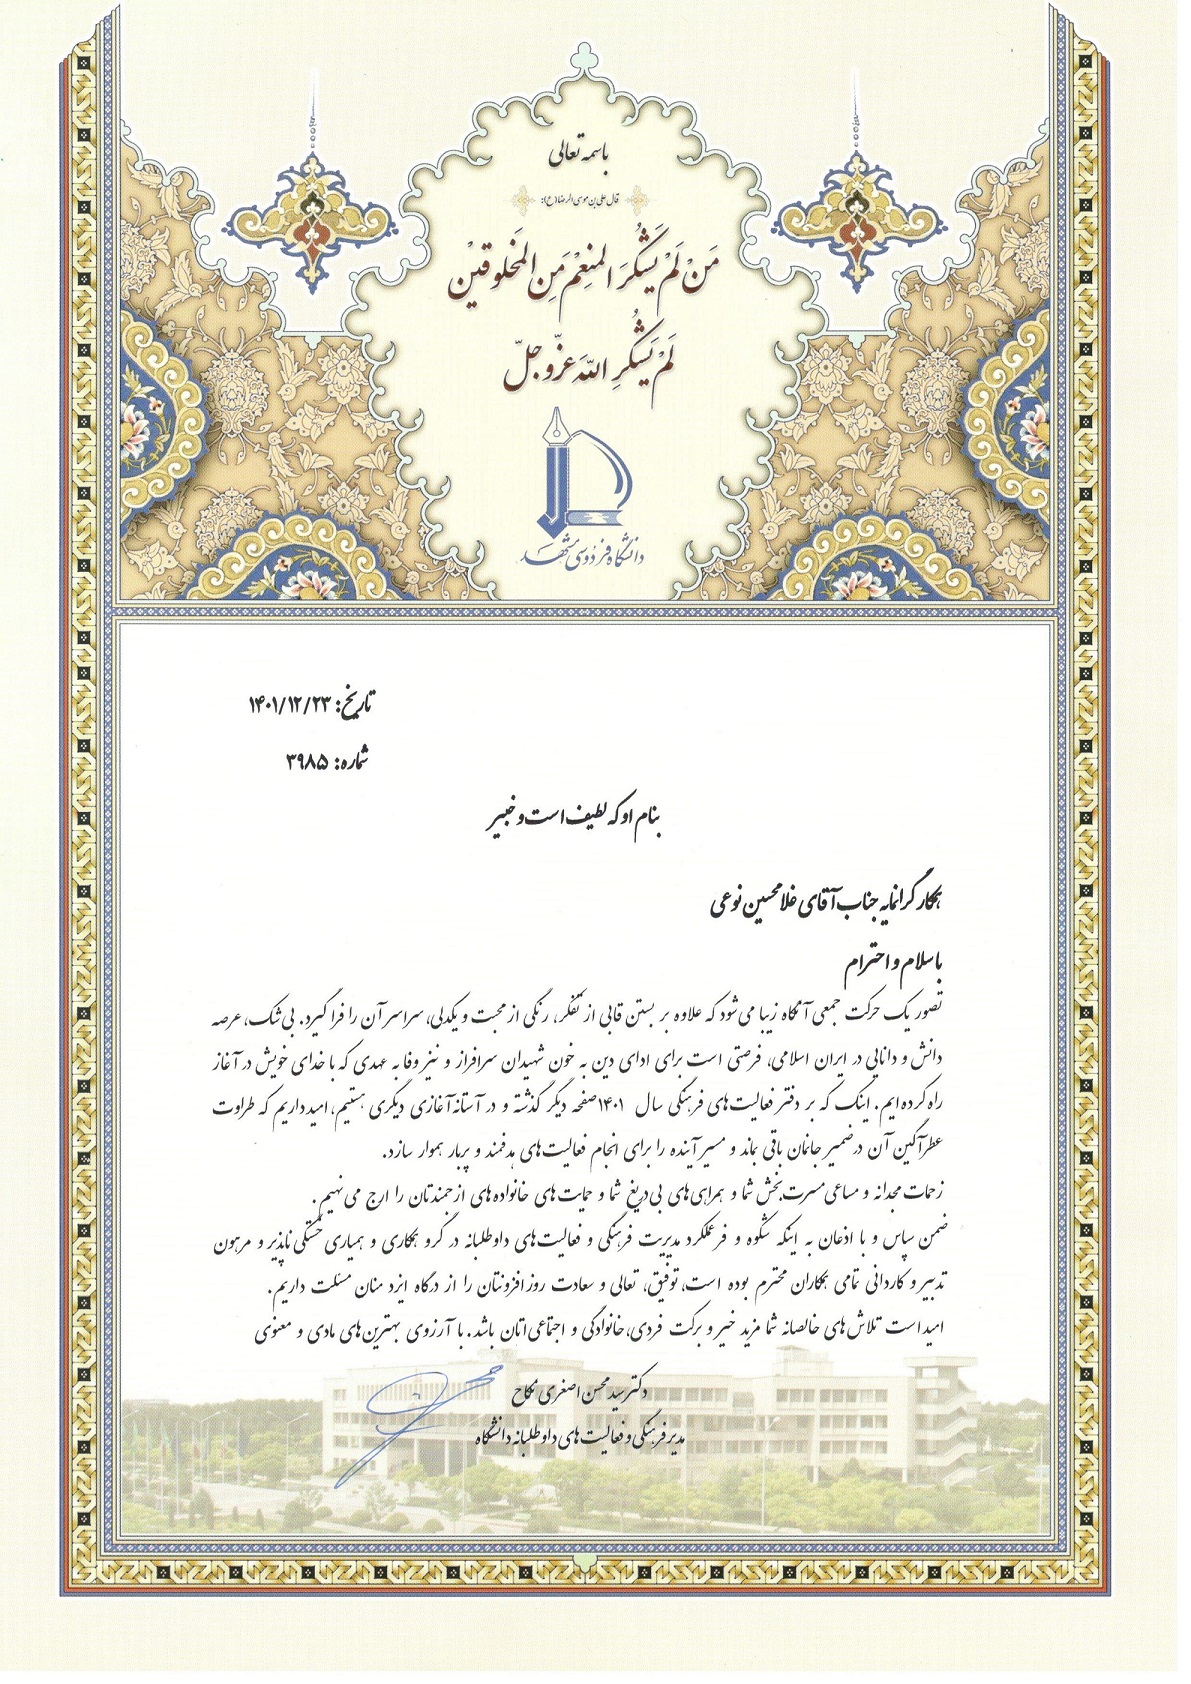 باسمه تعالی
قال علی بن موسی الرضا(ع):
مَنْ لَمْ یَشْکُرَ المُنعِمْ مَنِ المَخلوقینْ
لَمْ یَشْکُرِ اللّهَ عَزّوجلّ
دانشگاه فردوسی مشهد
تاریخ: ۱۴۰۱/۱۲/۲۳
شماره: ۳۹۸۵
بنام او که لطیف است و خبیر
همکار گرانمایه جناب آقای غلامحسین نوعی
با سلام و احترام
تصور یک حرکت جمعی آنگاه زیبا می‌شود که علاوه بر بستن قابی از تفکر، رنگی از محبت و یکدلی، سراسر آن را فرا گیرد. بی‌شک، عرصه
دانش و دانایی در ایران اسلامی، فرصتی است برای ادای دین به خون شهیدان سرافراز و نیز وفا به عهدی که با خدای خویش در آغاز
راه کرده‌ایم. اینک که بر دفتر فعالیت‌های فرهنگی سال ۱۴۰۱ صفحه دیگر گذشته و در آستانه آغازی دیگری هستیم، امید داریم که طراوت
عطرآگین آن درضمیر جانمان باقی بماند و مسیر آینده را برای انجام فعالیت‌های هدفمند و پربار هموار سازد.
زحمات مجدانه و مساعی مسرت‌بخش شما و همراهی‌های بی‌دریغ شما و حمایت‌های خانواده‌های ارجمندتان را ارج می‌نهیم.
ضمن سپاس و با اذعان به اینکه شکوه و فر عملکرد مدیریت فرهنگی و فعالیت‌های داوطلبانه در گرو همکاری و همیاری خستگی ناپذیر و مرهون
تدبیر و کاردانی تمامی همکاران محترم بوده است، توفیق، تعالی و سعادت روزافزونتان را از درگاه ایزد منان مسئلت داریم.
امید است تلاش‌های خالصانه شما مزید خیر و برکت فردی، خانوادگی و اجتماعی‌اتان باشد. با آرزوی بهترین‌های مادی و معنوی
دکتر سید محسن اصغری نکاح
مدیر فرهنگی و فعالیت‌های داوطلبانه دانشگاه